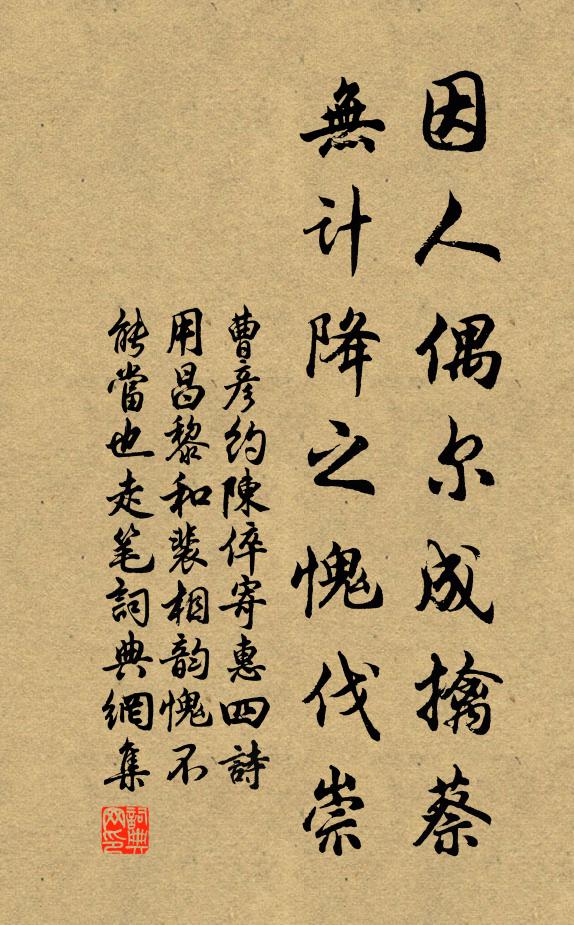 因人偶尔成擒蔡
無計降之愧伐崇
曹彦約陳倅寄惠四詩
用昌黎和裴相韵愧不
能當也走笔詞典網集
詞典网印